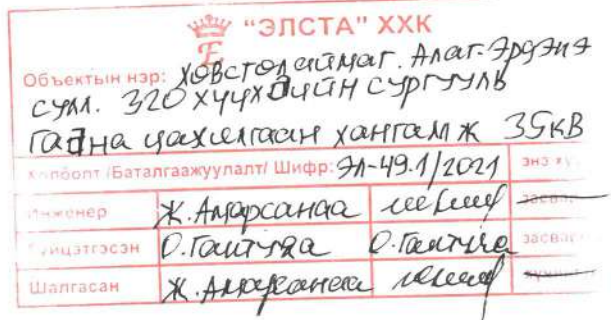 "ЭЛСТА" ХХК
Объектын нэр: Ховсгол аймаг. Алаг-Эрдэнэ
сум. 320 хүүхдийн сургууль
гадна цахилгаан хангамж 35кВ
/Баталгаажуулалт/ Шифр: ЭЛ-49.1/2021 энэ
Инженер Ж. Амарсанаа
Гүйцэтгэсэн О. Гантулга О. Гантулга
Шалгасан Ж. Амарсанаа